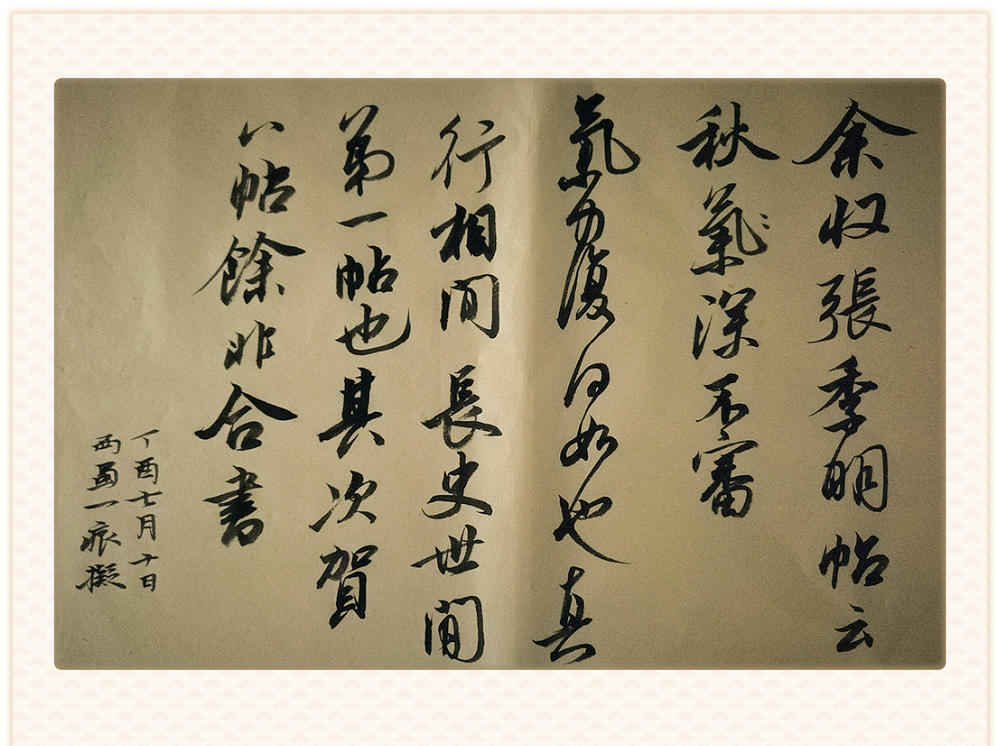 余収張季明帖云
秋氣深不審
氣力復何如也真
行相間長史世間
第一帖也其次賀
八帖餘非合書
丁酉七月十日
西蜀一痕擬